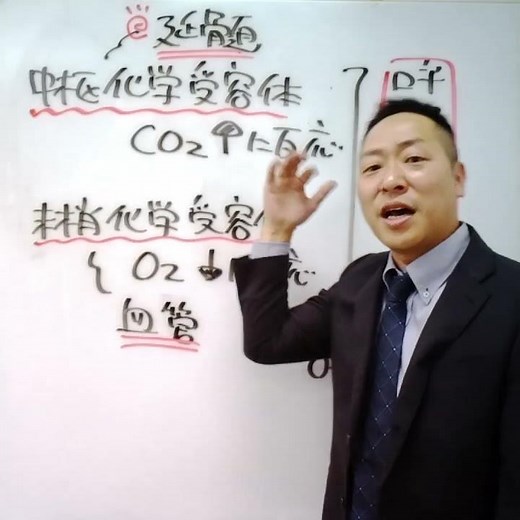 延髄
中枢化学受容体
CO2↑に反応
呼
末梢化学受容
O2↓に応
血管